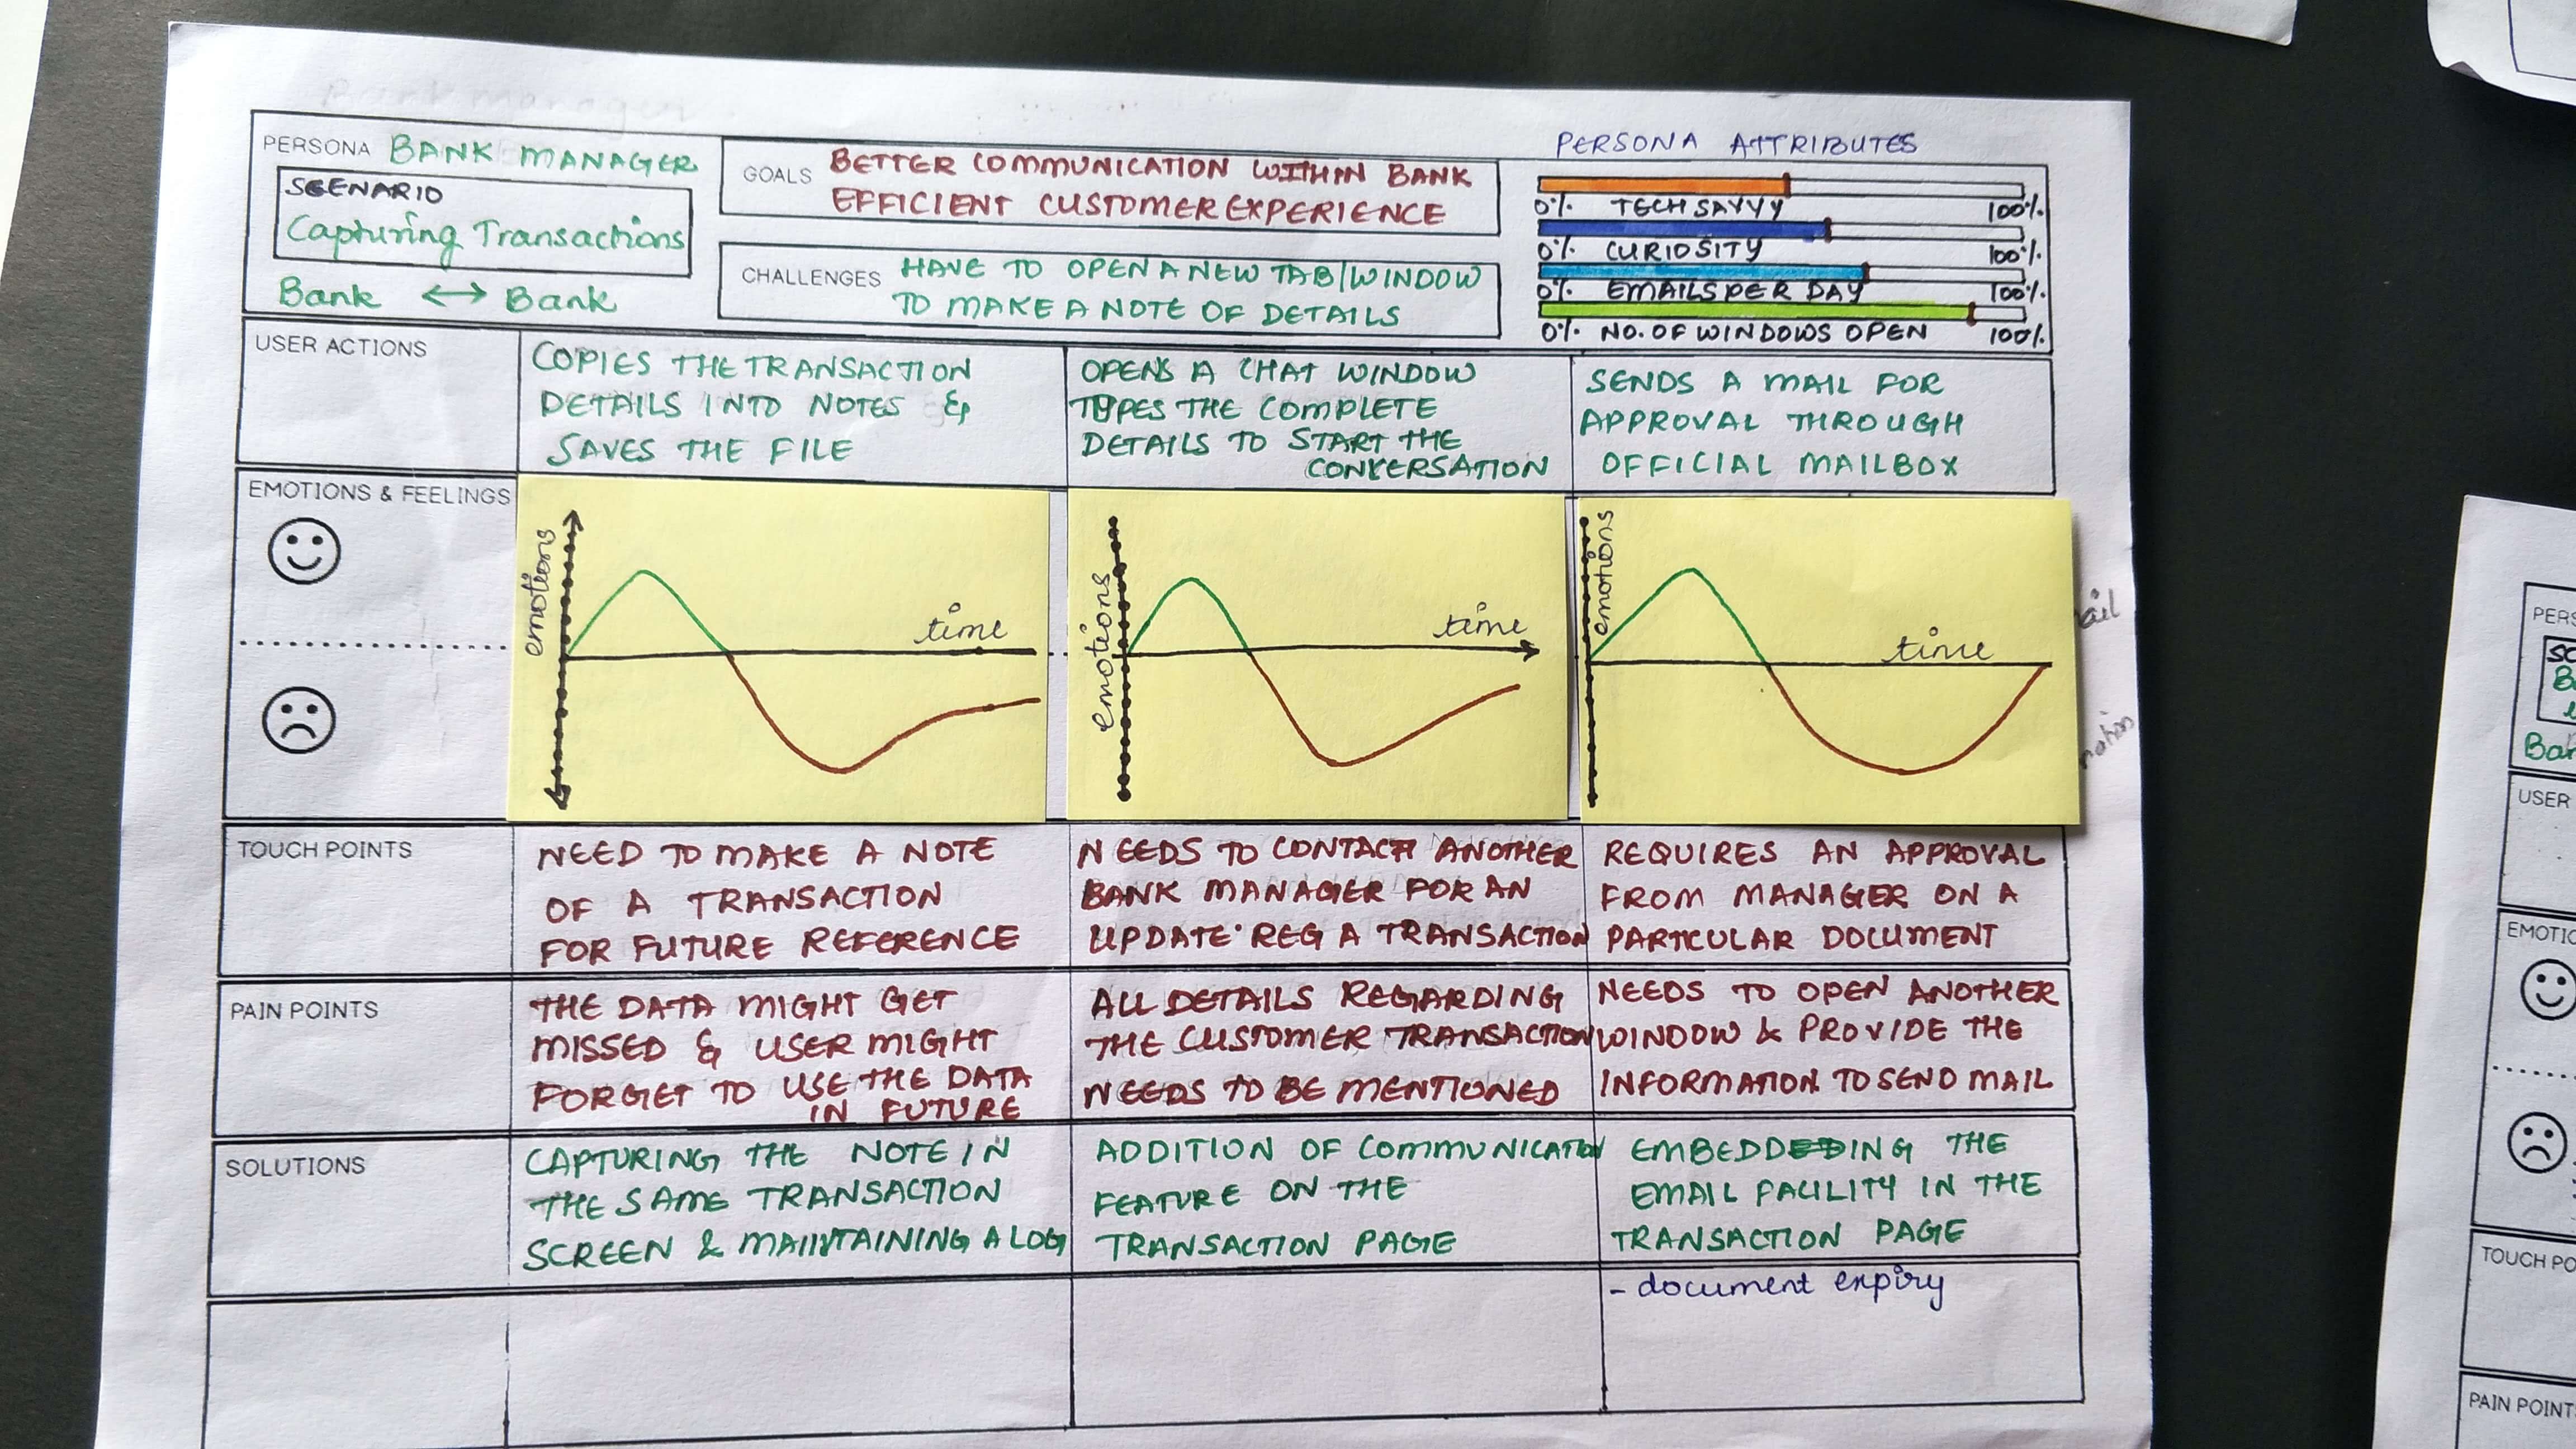 Bank manager
PERSONA BANK MANAGER
SCENARIO
Capturing Transactions
Bank ↔ Bank
GOALS BETTER COMMUNICATION WITHIN BANK
EFFICIENT CUSTOMER EXPERIENCE
CHALLENGES HAVE TO OPEN A NEW TAB/WINDOW
TO MAKE A NOTE OF DETAILS
PERSONA ATTRIBUTES
0% TECH SAVYY 100%
0% CURIOSITY 100%
0% EMAILS PER DAY 100%
0% NO. OF WINDOWS OPEN 100%
USER ACTIONS
COPIES THE TRANSACTION
DETAILS INTO NOTES &
SAVES THE FILE
OPENS A CHAT WINDOW
TYPES THE COMPLETE
DETAILS TO START THE
CONVERSATION
SENDS A MAIL FOR
APPROVAL THROUGH
OFFICIAL MAILBOX
EMOTIONS & FEELINGS
emotions
time
emotions
time
emotions
time
TOUCH POINTS
NEED TO MAKE A NOTE
OF A TRANSACTION
FOR FUTURE REFERENCE
NEEDS TO CONTACT ANOTHER
BANK MANAGER FOR AN
UPDATE REG A TRANSACTION
REQUIRES AN APPROVAL
FROM MANAGER ON A
PARTICULAR DOCUMENT
PAIN POINTS
THE DATA MIGHT GET
MISSED & USER MIGHT
FORGET TO USE THE DATA
IN FUTURE
ALL DETAILS REGARDING
THE CUSTOMER TRANSACTION
NEEDS TO BE MENTIONED
NEEDS TO OPEN ANOTHER
WINDOW & PROVIDE THE
INFORMATION TO SEND MAIL
SOLUTIONS
CAPTURING THE NOTE IN
THE SAME TRANSACTION
SCREEN & MAINTAINING A LOG
ADDITION OF COMMUNICATION
FEATURE ON THE
TRANSACTION PAGE
EMBEDDING THE
EMAIL FACILITY IN THE
TRANSACTION PAGE
- document expiry
PERS
SC
Ban
USER
EMOTIO
TOUCH PO
PAIN POINT